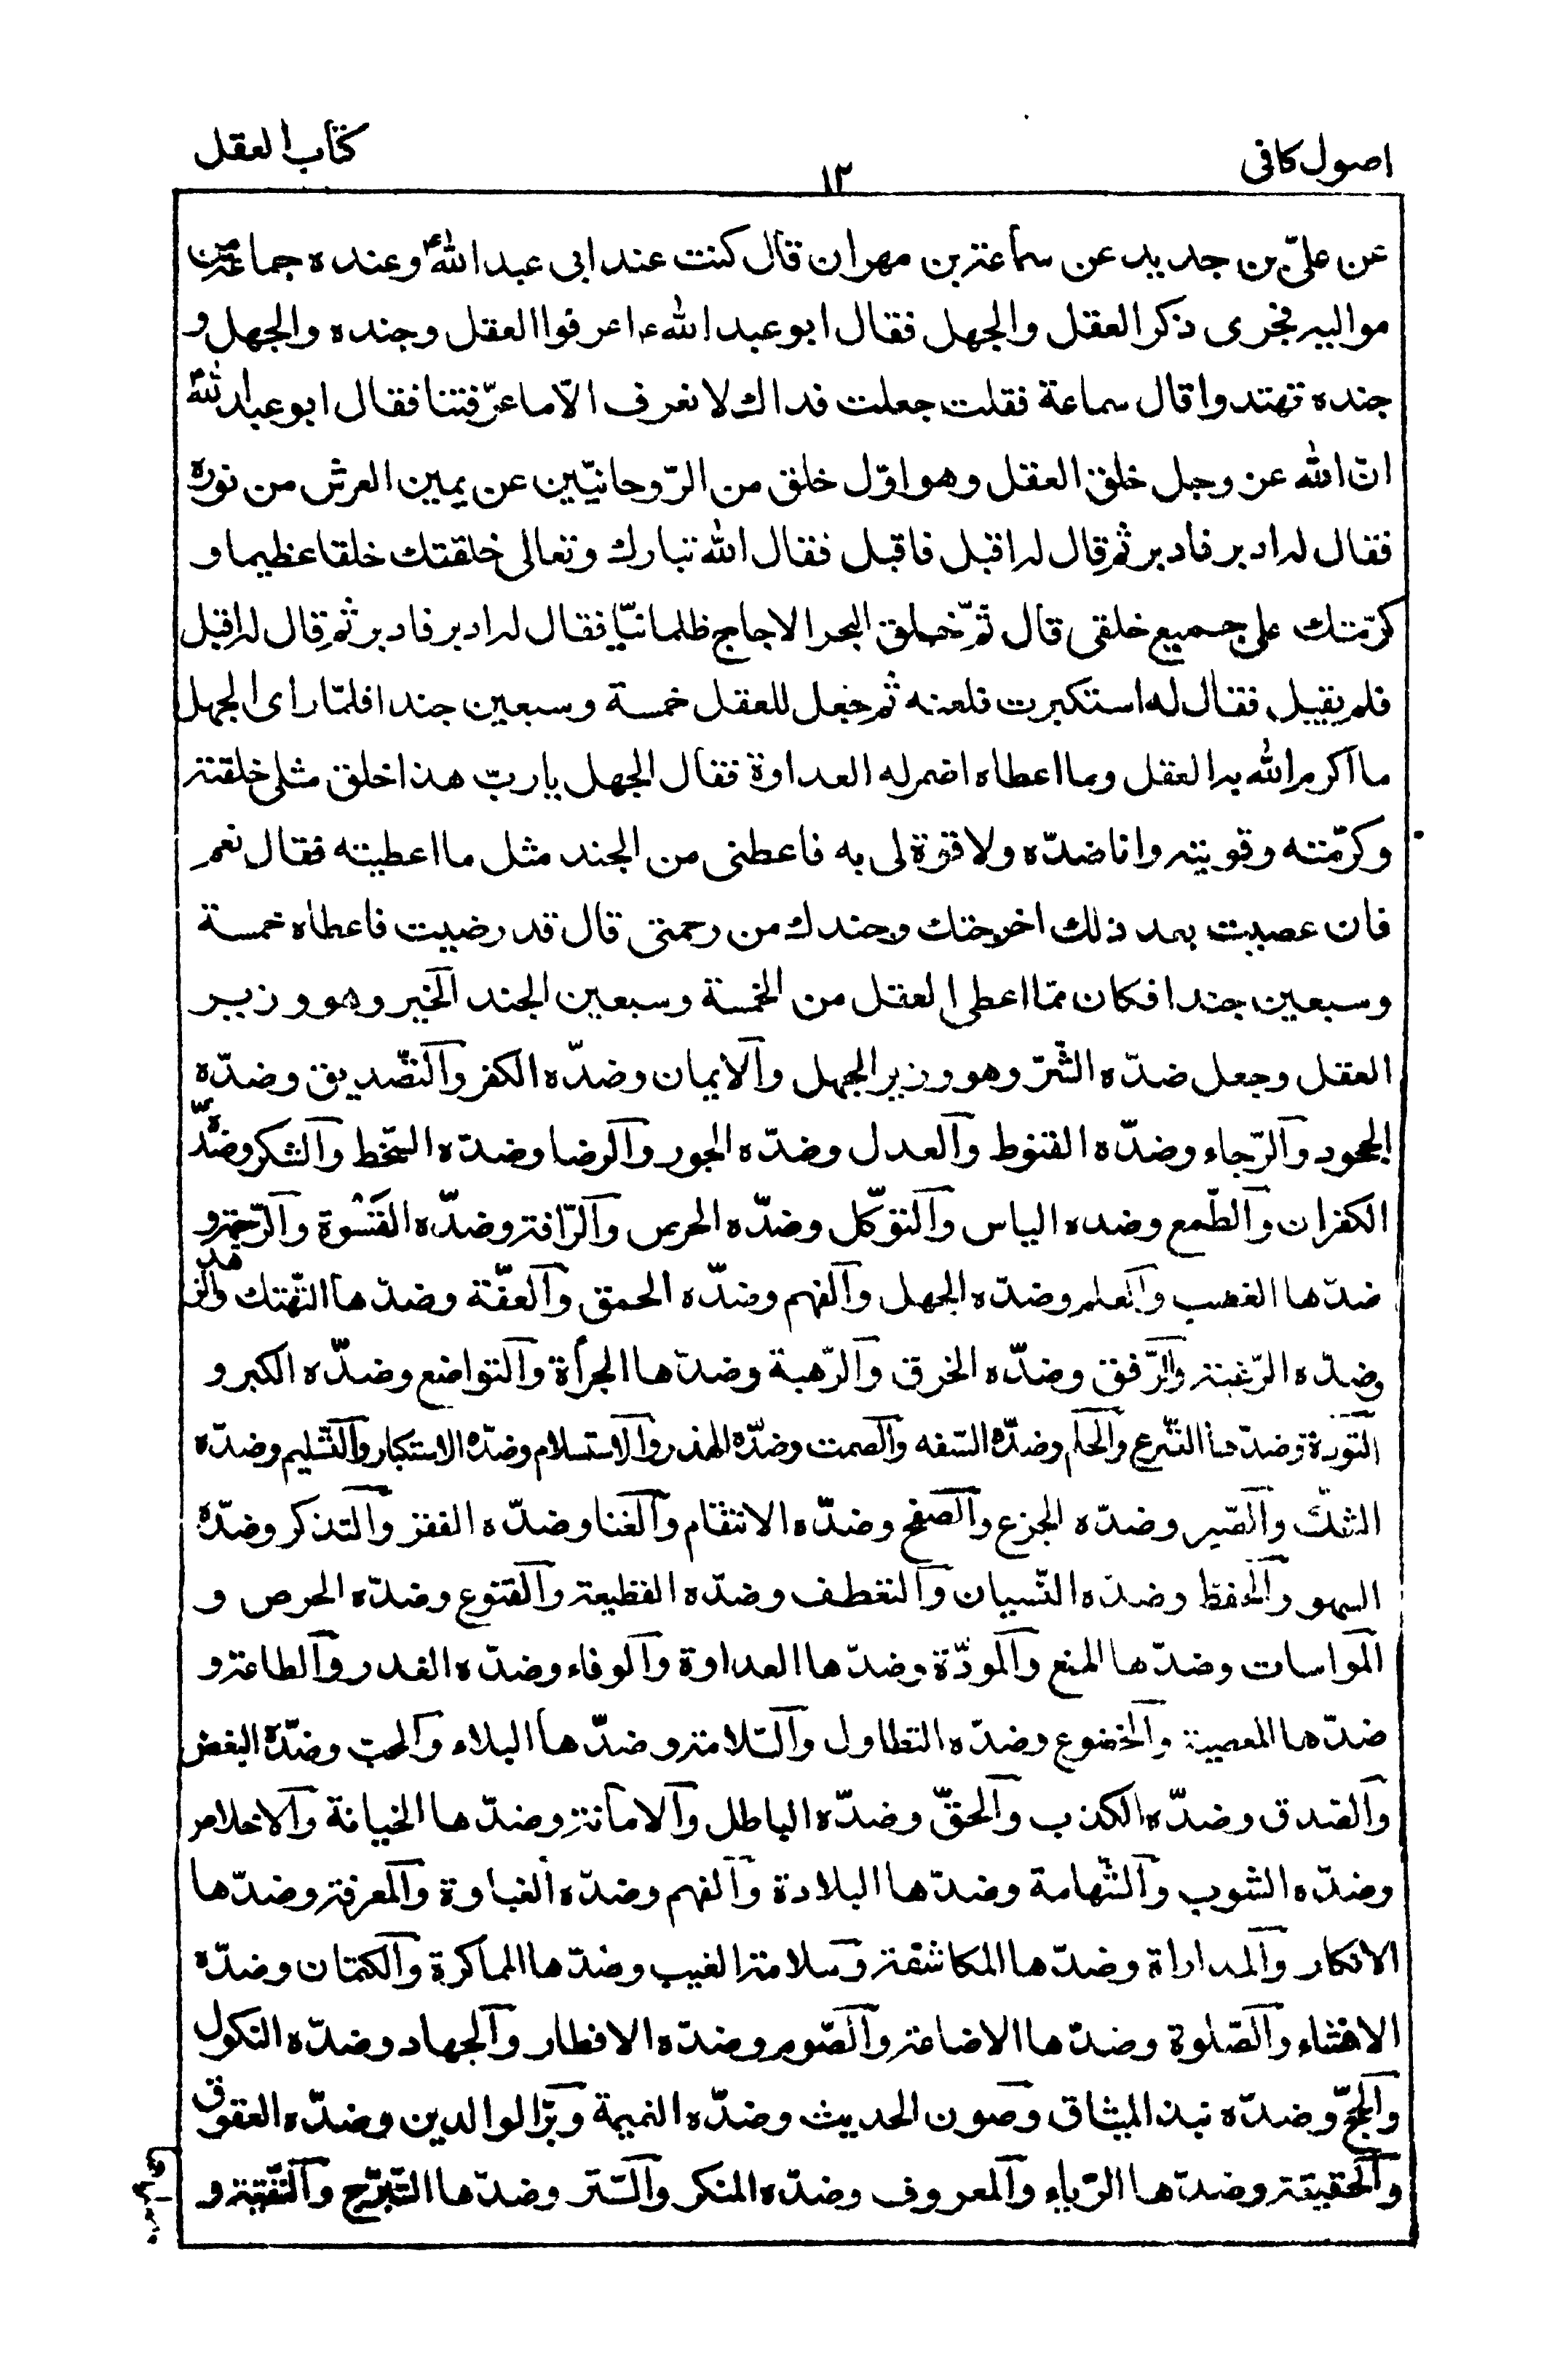 اصول كافى
١٢
كتاب العقل
عن علىّ بن حديد عن سماعة بن مهران قال كنت عند ابى عبد اللهؑ وعنده جماعة من
مواليه فجرى ذكر العقل والجهل فقال ابو عبد الله ع اعرفوا العقل وجنده والجهل و
جنده تهتدوا قال سماعة فقلت جعلت فداك لا نعرف الّا ما عرّفتنا فقال ابو عبد اللهؑ
انّ الله عز وجل خلق العقل وهو اوّل خلق من الرّوحانيّين عن يمين العرش من نوره
فقال له ادبر فادبر ثم قال له اقبل فاقبل فقال الله تبارك وتعالى خلقتك خلقا عظيما و
كرّمتك على جميع خلقى قال ثمّ خلق الجهل من البحر الاجاج ظلمانيّا فقال له ادبر فادبر ثم قال له اقبل
فلم يقبل فقال له استكبرت فلعنه ثم جعل للعقل خمسة وسبعين جندا فلمّا راى الجهل
ما اكرم الله به العقل وما اعطاه اضمر له العداوة فقال الجهل يا ربّ هذا خلق مثلى خلقته
وكرّمته وقويته وانا ضدّه ولا قوّة لى به فاعطنى من الجند مثل ما اعطيته فقال نعم
فان عصيت بعد ذلك اخرجتك وجندك من رحمتى قال قد رضيت فاعطاه خمسة
وسبعين جندا فكان ممّا اعطى العقل من الخمسة وسبعين الجند الخير وهو وزير
العقل وجعل ضدّه الشّرّ وهو وزير الجهل والايمان وضدّه الكفر والتّصديق وضدّه
الجحود والرّجاء وضدّه القنوط والعدل وضدّه الجور والرضا وضدّه السّخط والشكر وضدّه
الكفران والطّمع وضده الياس والتوكّل وضدّه الحرص والرّافة وضدّه القَسْوة والرّحمة و
ضدّها الغضب والعلم وضدّه الجهل والفهم وضدّه الحمق والعفّة وضدّها التّهتك والزهد
وضدّه الرّغبة والرّفق وضدّه الخرق والرّهبة وضدّها الجرأة والتواضع وضدّه الكبر و
التّورة وضدّها التّسرع والحلم وضدّه السّفه والصمت وضدّه الهذر والاستسلام وضدّه الاستكبار والتّسليم وضدّه
الشكّ والصّبر وضدّه الجزع والصفح وضدّه الانتقام والغنا وضدّه الفقر والتذكر وضدّه
السهو والحفظ وضدّه النّسيان والتعطف وضدّه القطيعة والقنوع وضدّه الحرص و
المواسات وضدّها المنع والمودّة وضدّها العداوة والوفاء وضدّه الغدر والطاعة و
ضدّها المعصية والخضوع وضدّه التطاول والسّلامة وضدّها البلاء والحبّ وضدّه البغض
والصّدق وضدّه الكذب والحقّ وضدّه الباطل والامانة وضدّها الخيانة والاخلاص
وضدّه الشوب والشّهامة وضدّها البلادة والفهم وضدّه الغباوة والمعرفة وضدّها
الانكار والمداراة وضدّها المكاشفة وسلامة الغيب وضدّها المماكرة والكتمان وضدّه
الافشاء والصّلوة وضدّها الاضاعة والصّوم وضدّه الافطار والجهاد وضدّه النكول
والحجّ وضدّه نبذ الميثاق وصون الحديث وضدّه النميمة وبرّ الوالدين وضدّه العقوق
والحقيقة وضدّها الرّياء والمعروف وضدّه المنكر والسّتر وضدّها التّبرّج والتّقيّة و